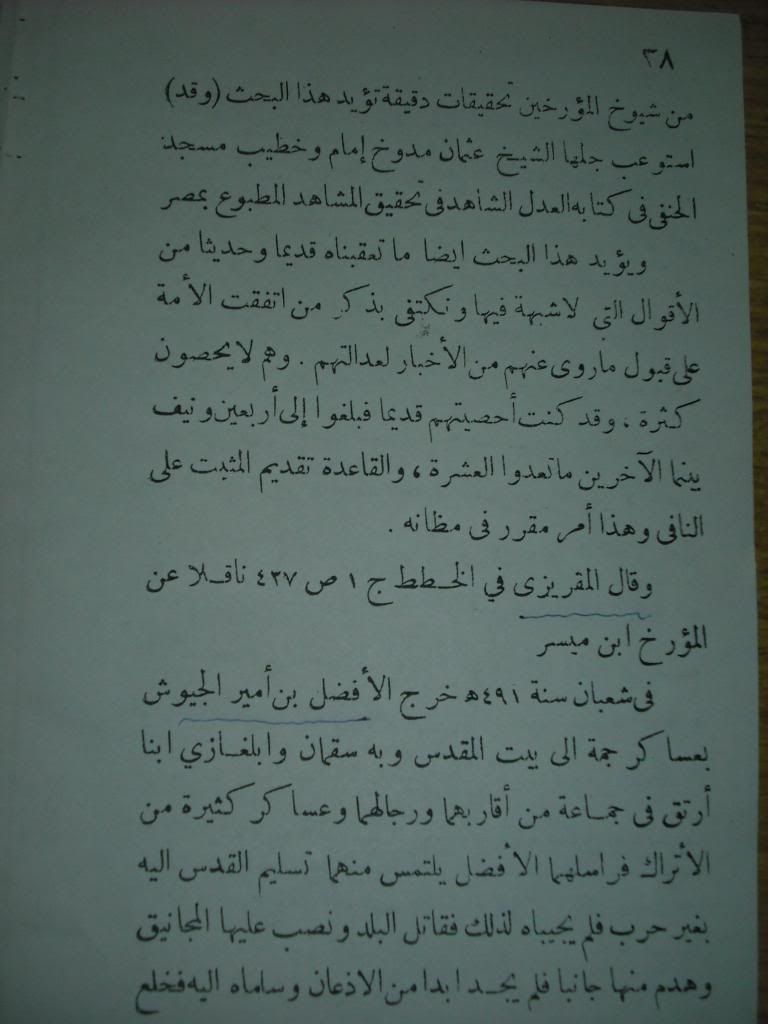 ٣٨
من شيوخ المؤرخين تحقيقات دقيقة تؤيد هذا البحث (وقد)
استوعب جلها الشيخ عثمان مدوخ إمام وخطيب مسجد
الحنفى فى كتابه العدل الشاهد فى تحقيق المشاهد المطبوع بمصر
ويؤيد هذا البحث ايضا ما تعقبناه قديما وحديثا من
الأقوال التى لاشبهة فيها ونكتفى بذكر من اتفقت الأمة
على قبول ماروى عنهم من الأخبار لعدالتهم . وهم لايحصون
كثرة ، وقد كنت أحصيتهم قديما فبلغوا إلى أربعين ونيف
بينما الآخرين ماتعدوا العشرة ، والقاعدة تقديم المثبت على
النافى وهذا أمر مقرر فى مظانه .
وقال المقريزى في الخطط ج ١ ص ٤٢٧ ناقلا عن
المؤرخ ابن ميسر
فى شعبان سنة ٤٩١ﻫ خرج الأفضل بن أمير الجيوش
بعساكر جمة الى بيت المقدس وبه سقمان وابلغازي ابنا
أرتق فى جماعة من أقاربهما ورجالهما وعساكر كثيرة من
الأتراك فراسلهما الأفضل يلتمس منهما تسليم القدس اليه
بغير حرب فلم يجيباه لذلك فقاتل البلد ونصب عليها المجانيق
وهدم منها جانبا فلم يجدا بدا من الاذعان وسلماه اليه فخلع